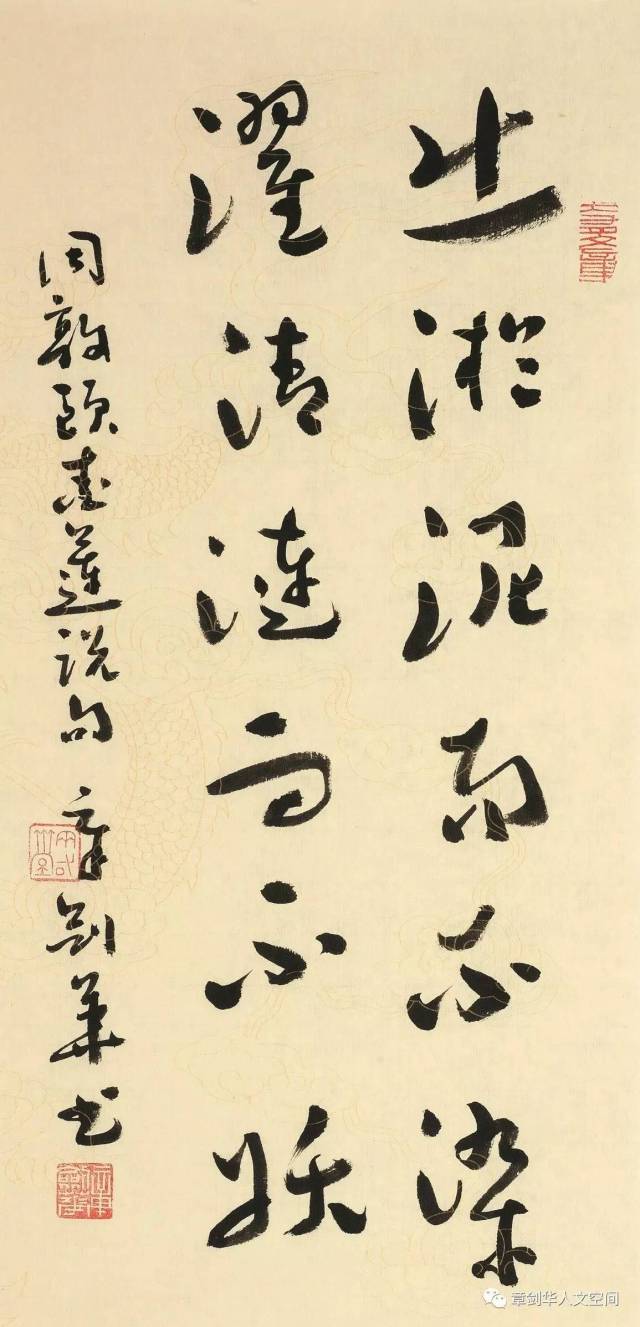 出淤泥而不染
濯清漣而不妖
周敦頤愛蓮说句 章剑華书
章剑华人文空间